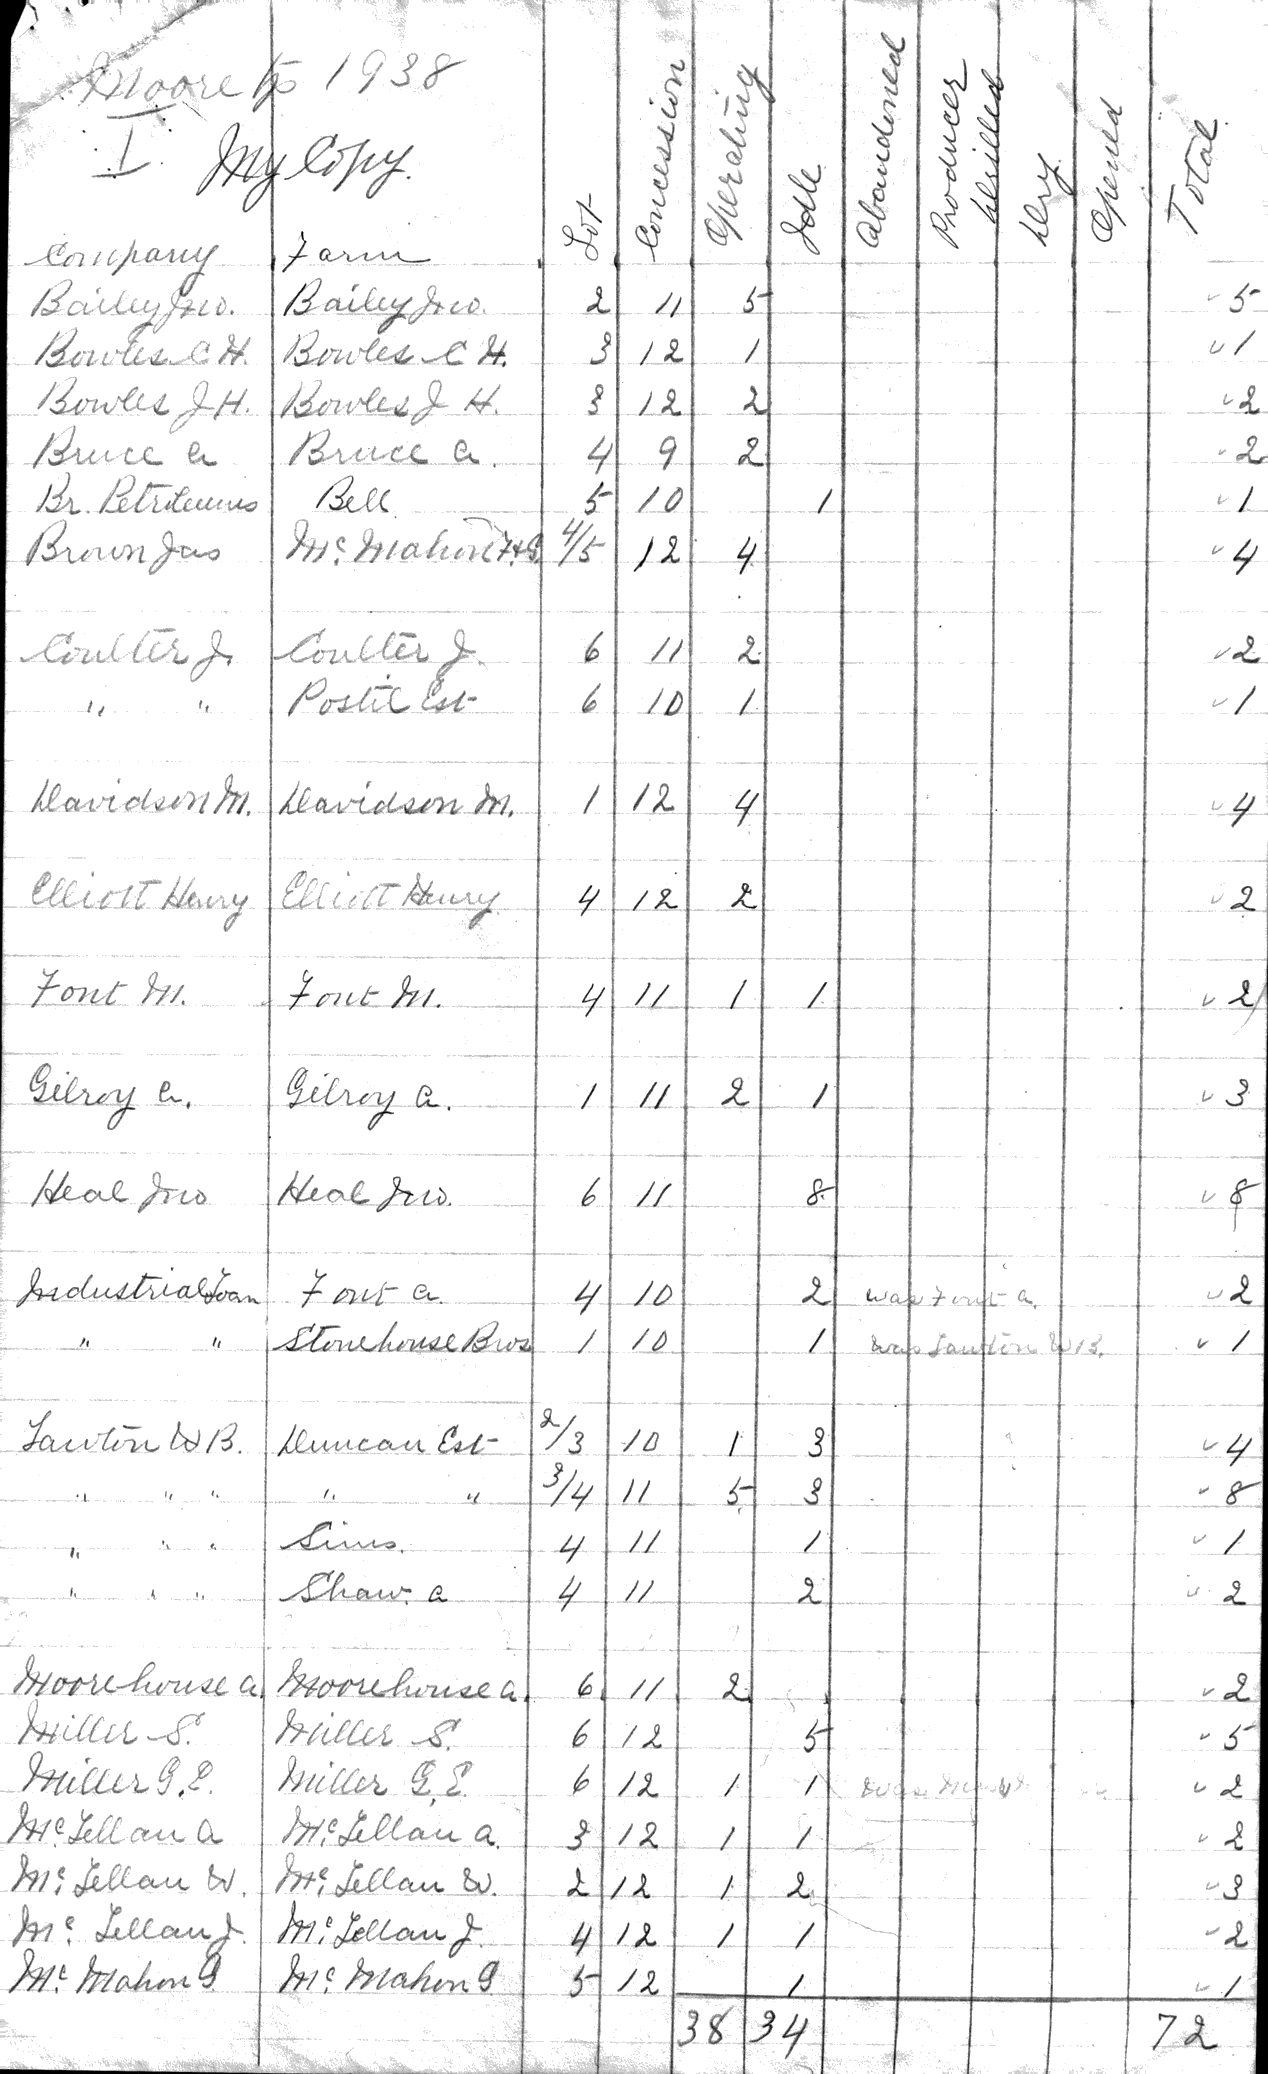 Moore tp 1938
I My Copy.
Company Farm Lot Concession Operating Idle Abandoned Producer Drilled Dry Opened Total
Bailey Jno. Bailey Jno. 2 11 5 5
Bowles C H. Bowles C H. 3 12 1 1
Bowles J H. Bowles J H. 3 12 2 2
Bruce A Bruce A. 4 9 2 2
Br. Petroleums Bell 5 10 1 1
Brown Jas Mc. Mahon F.G. 4/5 12 4 4
Coulter J. Coulter J. 6 11 2 2
" " Postil Est 6 10 1 1
Davidson M. Davidson M. 1 12 4 4
Elliott Henry Elliott Henry 4 12 2 2
Font M. Font M. 4 11 1 1 2
Gilroy A. Gilroy A. 1 11 2 1 3
Heal Jno Heal Jno. 6 11 8 8
Industrial Loan Font A. 4 10 2 was Font A. 2
" " Stonehouse Bros 1 10 1 was Lawton W B. 1
Lawton W B. Duncan Est 2/3 10 1 3 4
" " " " " 3/4 11 5 3 8
" " " Sims. 4 11 1 1
" " " Shaw. A 4 11 2 2
Moorehouse A. Moorehouse A. 6 11 2 2
Miller S. Miller S. 6 12 5 5
Miller G.E. Miller G.E. 6 12 1 1 was 2
Mc. Lellan A Mc. Lellan A. 3 12 1 1 2
Mc. Lellan W. Mc. Lellan W. 2 12 1 2 3
Mc. Lellan J. Mc. Lellan J. 4 12 1 1 2
Mc. Mahon G Mc. Mahon G 5 12 1 1
38 34 72